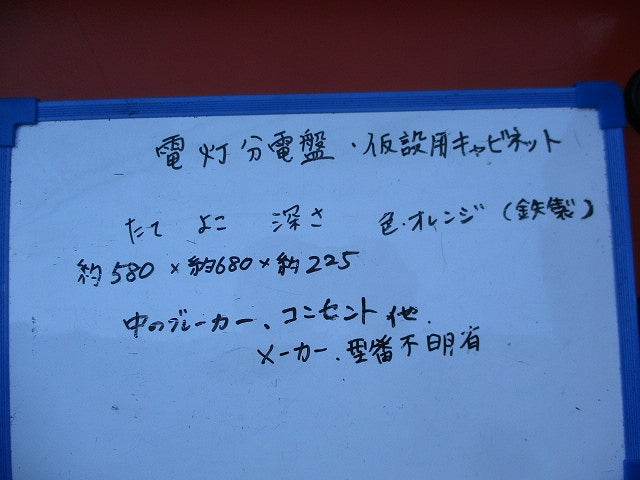 電灯分電盤・仮設用キャビネット
たて よこ 深さ 色・オレンジ (鉄製)
約580×約680×約225
中のブレーカー、コンセント他.
メーカー.型番不明省